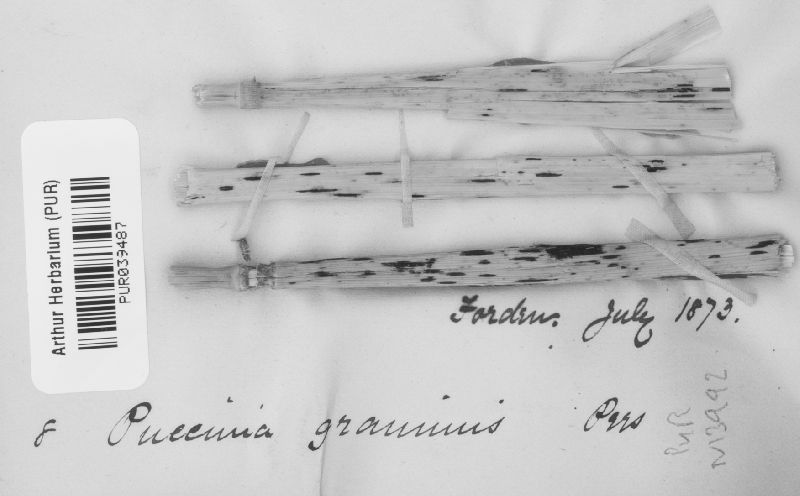 Arthur Herbarium (PUR)
PUR039487
Forden. July 1873.
8 Puccinia graminis Pers
PUR
N139A92